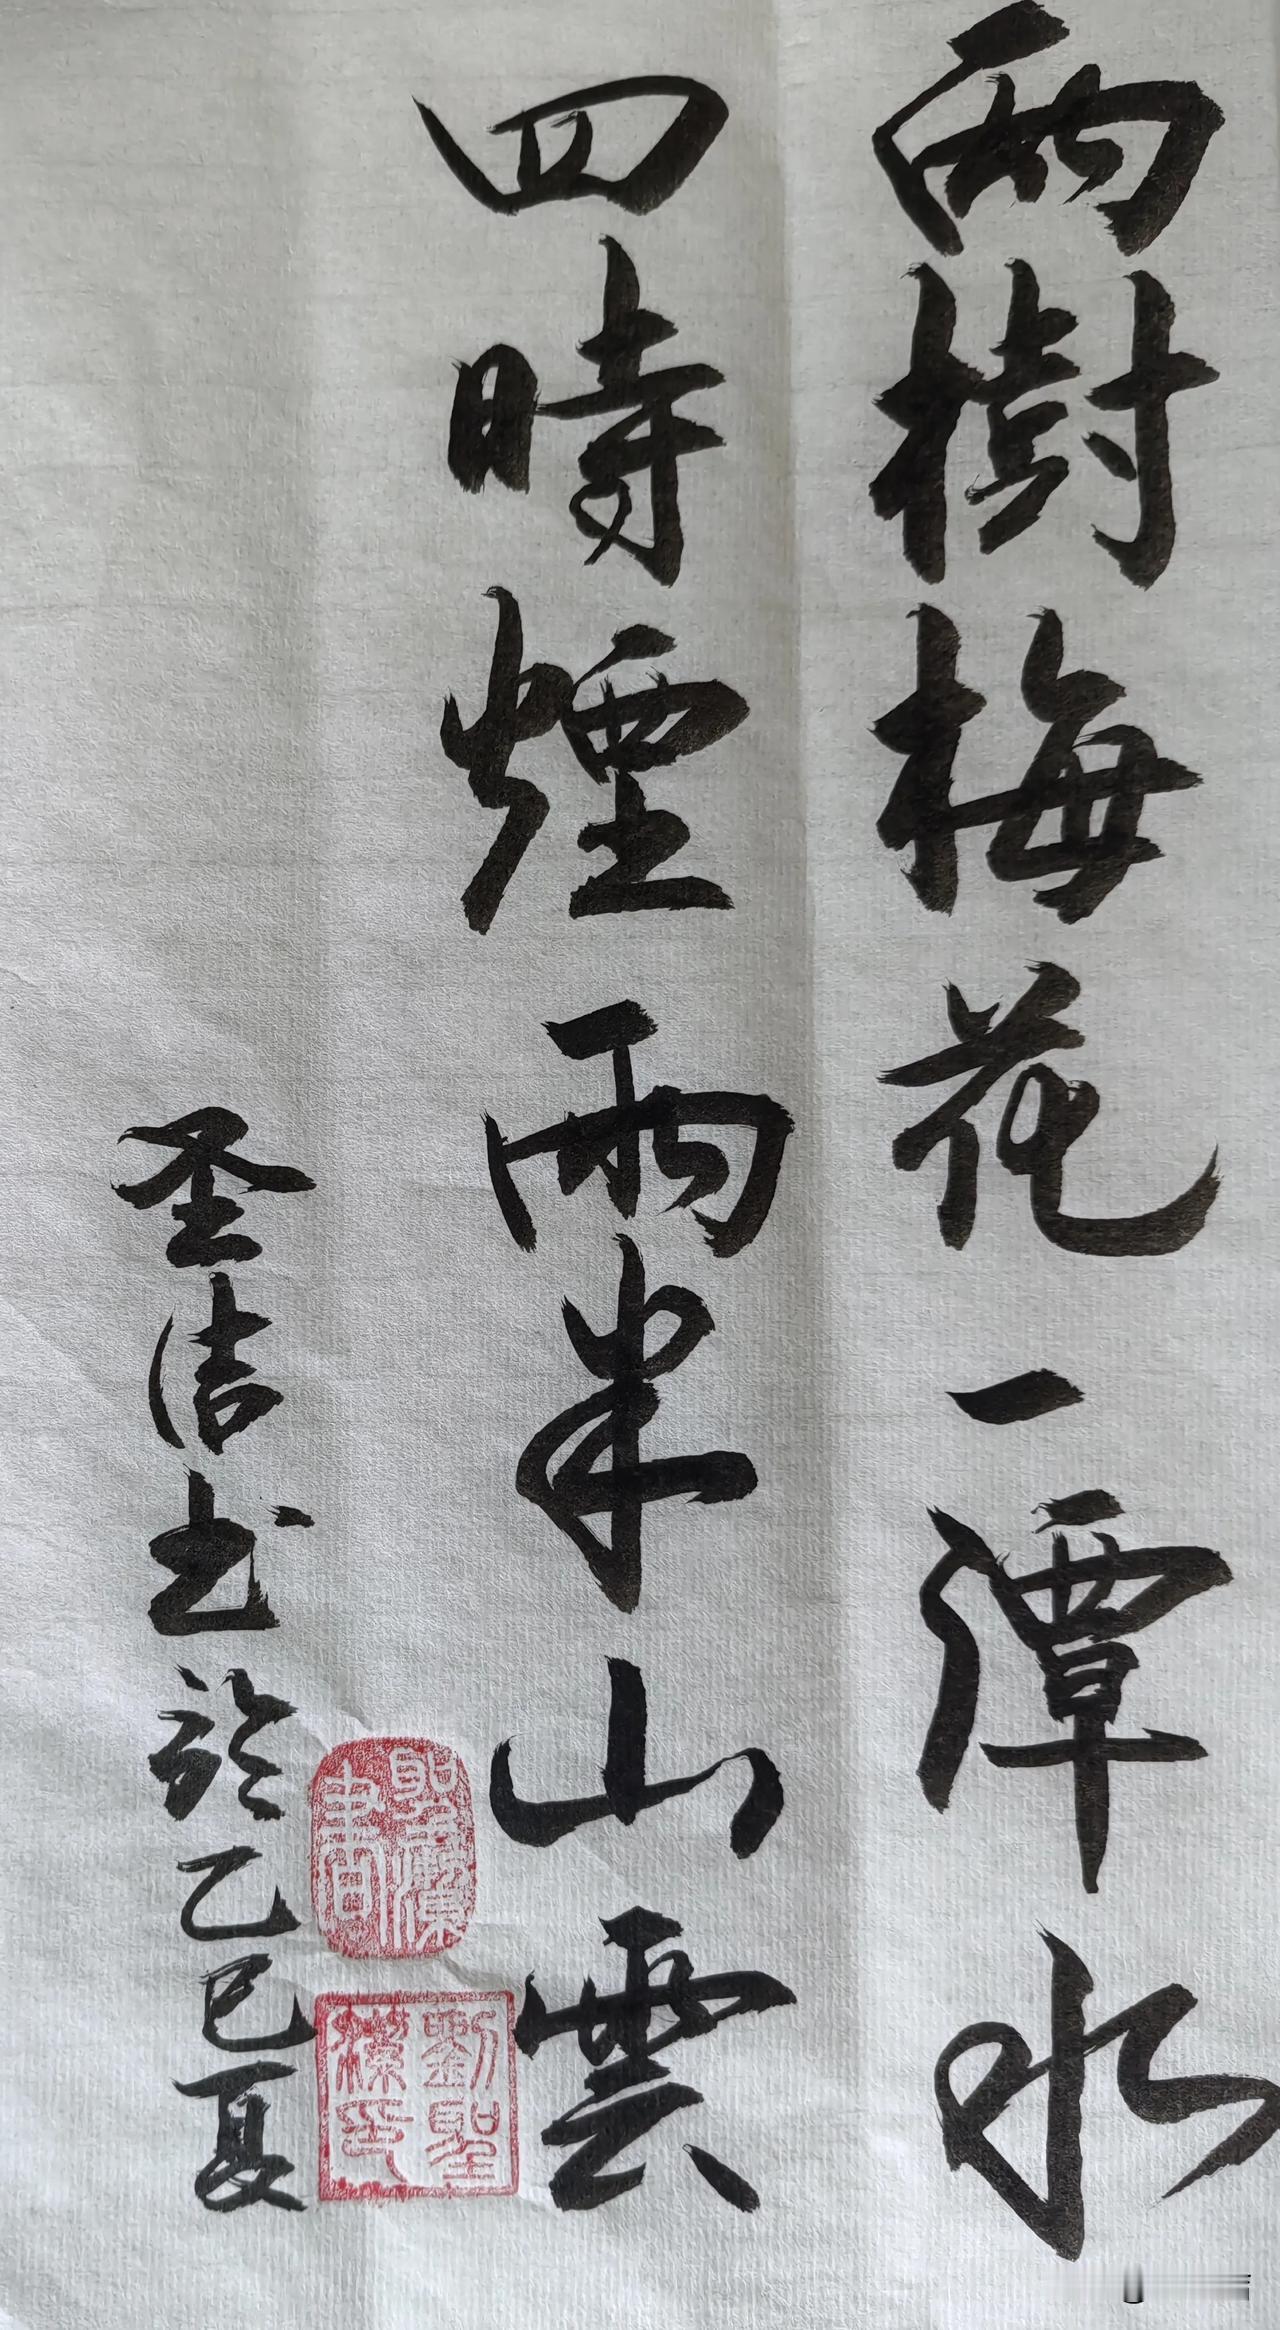 兩樹梅花一潭水
四時煙雨半山雲
圣洁书於乙巳夏
聖潔書畫
劉聖潔印